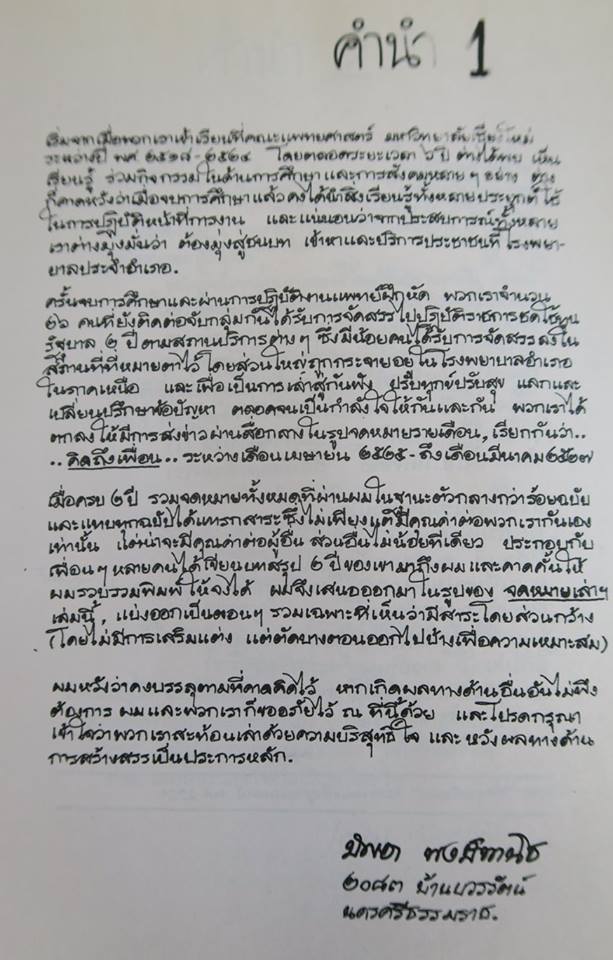 คำนำ 1
เริ่มจากเมื่อพวกเราเข้าเรียนที่คณะแพทยศาสตร์ มหาวิทยาลัยเชียงใหม่
ระหว่างปี พศ ๒๕๑๘-๒๕๒๔ โดยตลอดระยะเวลา ๖ ปี ต่างได้พบ เห็น
เรียนรู้ ร่วมกิจกรรมในด้านการศึกษา และการสังคมหลายๆ อย่าง ต่าง
ก็คาดหวังว่าเมื่อจบการศึกษาแล้วคงได้นำสิ่งเรียนรู้ทั้งหลายประยุกต์ใช้
ในการปฏิบัติหน้าที่การงาน และแน่นอนว่าจากประสบการณ์ทั้งหลาย
เราต่างมุ่งมั่นว่า ต้องมุ่งสู่ชนบท เข้าหาและบริการประชาชนที่โรงพยา-
บาลประจำอำเภอ.
ครั้นจบการศึกษาและผ่านการปฏิบัติงานแพทย์ฝึกหัด พวกเราจำนวน
๒๖ คนที่ยังติดต่อจับกลุ่มกันได้รับการจัดสรรไปปฏิบัติราชการชดใช้ทุน
รัฐบาล ๒ ปี ตามสถานบริการต่างๆ ซึ่งมีน้อยคนได้รับการจัดสรรลงใน
สถานที่ที่หมายตาไว้ โดยส่วนใหญ่ถูกกระจายอยู่ในโรงพยาบาลอำเภอ
ในภาคเหนือ และเพื่อเป็นการเล่าสู่กันฟัง ปรับทุกข์ปรับสุข แลกและ
เปลี่ยนปรึกษาข้อปัญหา ตลอดจนเป็นกำลังใจให้กันและกัน พวกเราได้
ตกลงให้มีการส่งข่าวผ่านสื่อกลางในรูปจดหมายรายเดือน, เรียกกันว่า..
..คิดถึงเพื่อน.. ระหว่างเดือนเมษายน ๒๕๒๕- ถึงเดือนมีนาคม ๒๕๒๗
เมื่อครบ ๒ ปี รวมจดหมายทั้งหมดที่ผ่านผมในฐานะตัวกลางกว่าร้อยฉบับ
และแทบทุกฉบับได้แทรกสาระซึ่งไม่เพียงแต่มีคุณค่าต่อพวกเรากันเอง
เท่านั้น แต่น่าจะมีคุณค่าต่อผู้อื่น ส่วนอื่นไม่น้อยทีเดียว ประกอบกับ
เพื่อนๆ หลายคนได้เขียนบทสรุป ๒ ปีของเขามาถึงผม และคาดคั้นให้
ผมรวบรวมพิมพ์ให้จงได้ ผมจึงเสนอออกมาในรูปของ จดหมายเล่าฯ
เล่มนี้, แบ่งออกเป็นตอนๆ รวมเฉพาะที่เห็นว่ามีสาระโดยส่วนกว้าง
(โดยไม่มีการเสริมแต่ง แต่ตัดบางตอนออกไปบ้างเพื่อความเหมาะสม)
ผมหวังว่าคงบรรลุตามที่คาดคิดไว้ หากเกิดผลทางด้านอื่นอันไม่พึง
ต้องการ ผมและพวกเราก็ขออภัยไว้ ณ ที่นี้ด้วย และโปรดกรุณา
เข้าใจว่าพวกเราสะท้อนเล่าด้วยความบริสุทธิ์ใจ และหวังผลทางด้าน
การสร้างสรรเป็นประการหลัก.
๒๐๘๓ บ้านบวรรัตน์
นครศรีธรรมราช.